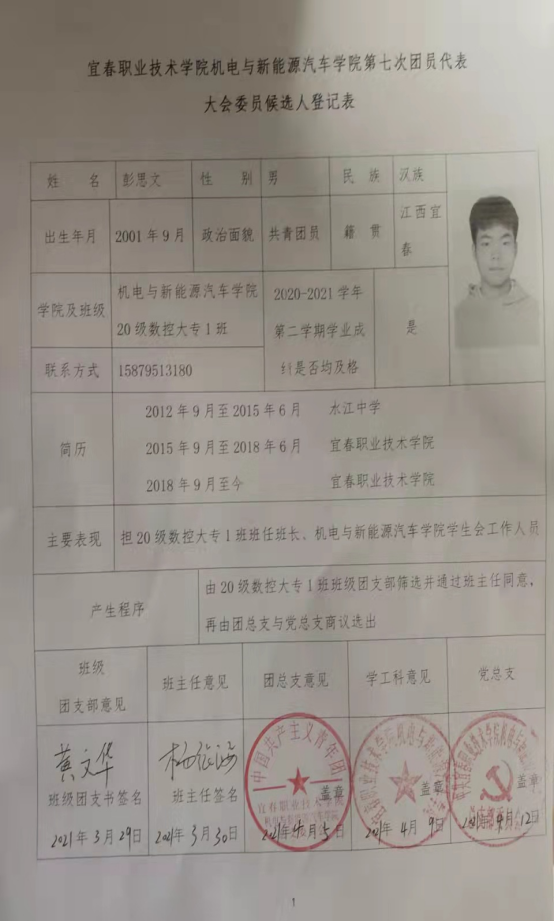 宜春职业技术学院机电与新能源汽车学院第七次团员代表
大会委员候选人登记表
姓 名 彭思文 性 别 男 民 族 汉族
出生年月 2001年9月 政治面貌 共青团员 籍 贯 江西宜
春
学院及班级 机电与新能源汽车学院
20级数控大专1班
2020-2021学年
第二学期学业成
纠是否均及格
是
联系方式 15879513180
简历
2012年9月至2015年6月 水江中学
2015年9月至2018年6月 宜春职业技术学院
2018年9月至今 宜春职业技术学院
主要表现 担20级数控大专1班班任班长、机电与新能源汽车学院学生会工作人员
产生程序
由20级数控大专1班班级团支部筛选并通过班主任同意,
再由团总支与党总支商议选出
班级
团支部意见
班主任意见 团总支意见 学工科意见 党总支
黄文华
班级团支书签名
2021年3月29日
班主任签名
2021年3月30日
中国共产主义青年团
宜春职业技术学院
盖章
2021年4月5日
盖章
2021年4月9日
盖章
2021年4月12日
1